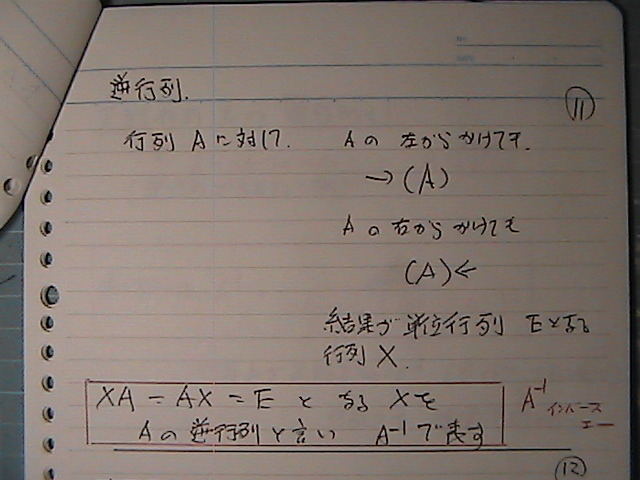 逆行列.
⑪
行列 A に対して. A の 左からかけても.
→(A)
A の右から かけても
(A)←
結果が 単位行列 E となる
行列 X.
XA = AX = E と なる X を
A の 逆行列と言い A⁻¹ で表す
A⁻¹ インバース
エー
⑫